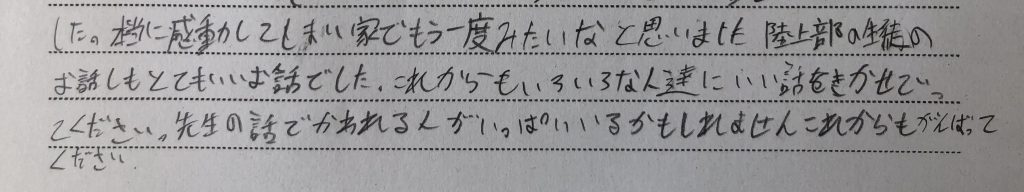 した。本当に感動してしまい家でもう一度みたいなと思いました 陸上部の生徒の
お話しもとてもいいお話でした。これからもいろいろな人達にいい話をきかせてっ
てください。先生の話でかわれる人がいっぱいいるかもしれませんこれからもがんばって
ください.